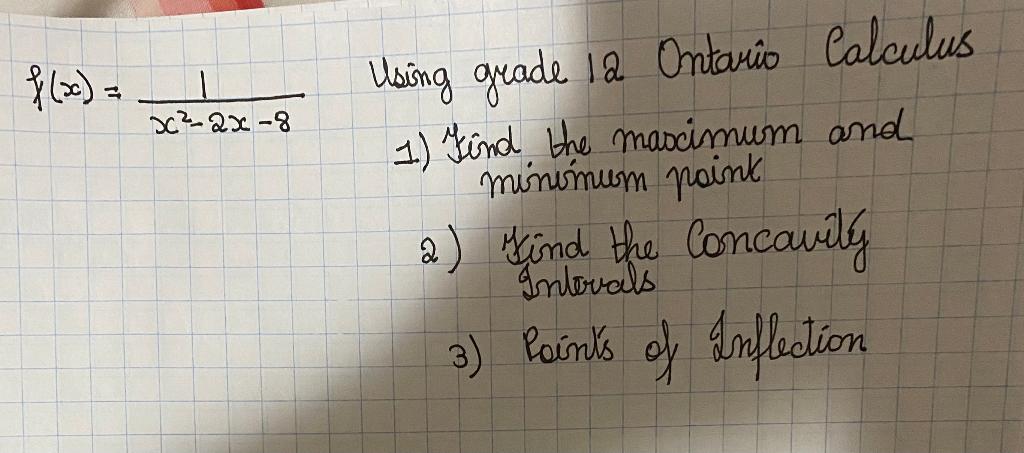 f(x) = 1 / x² - 2x - 8
Using grade 12 Ontario Calculus
1) Find the maximum and
minimum point
2) Find the Concavity
Intervals
3) Points of Inflection